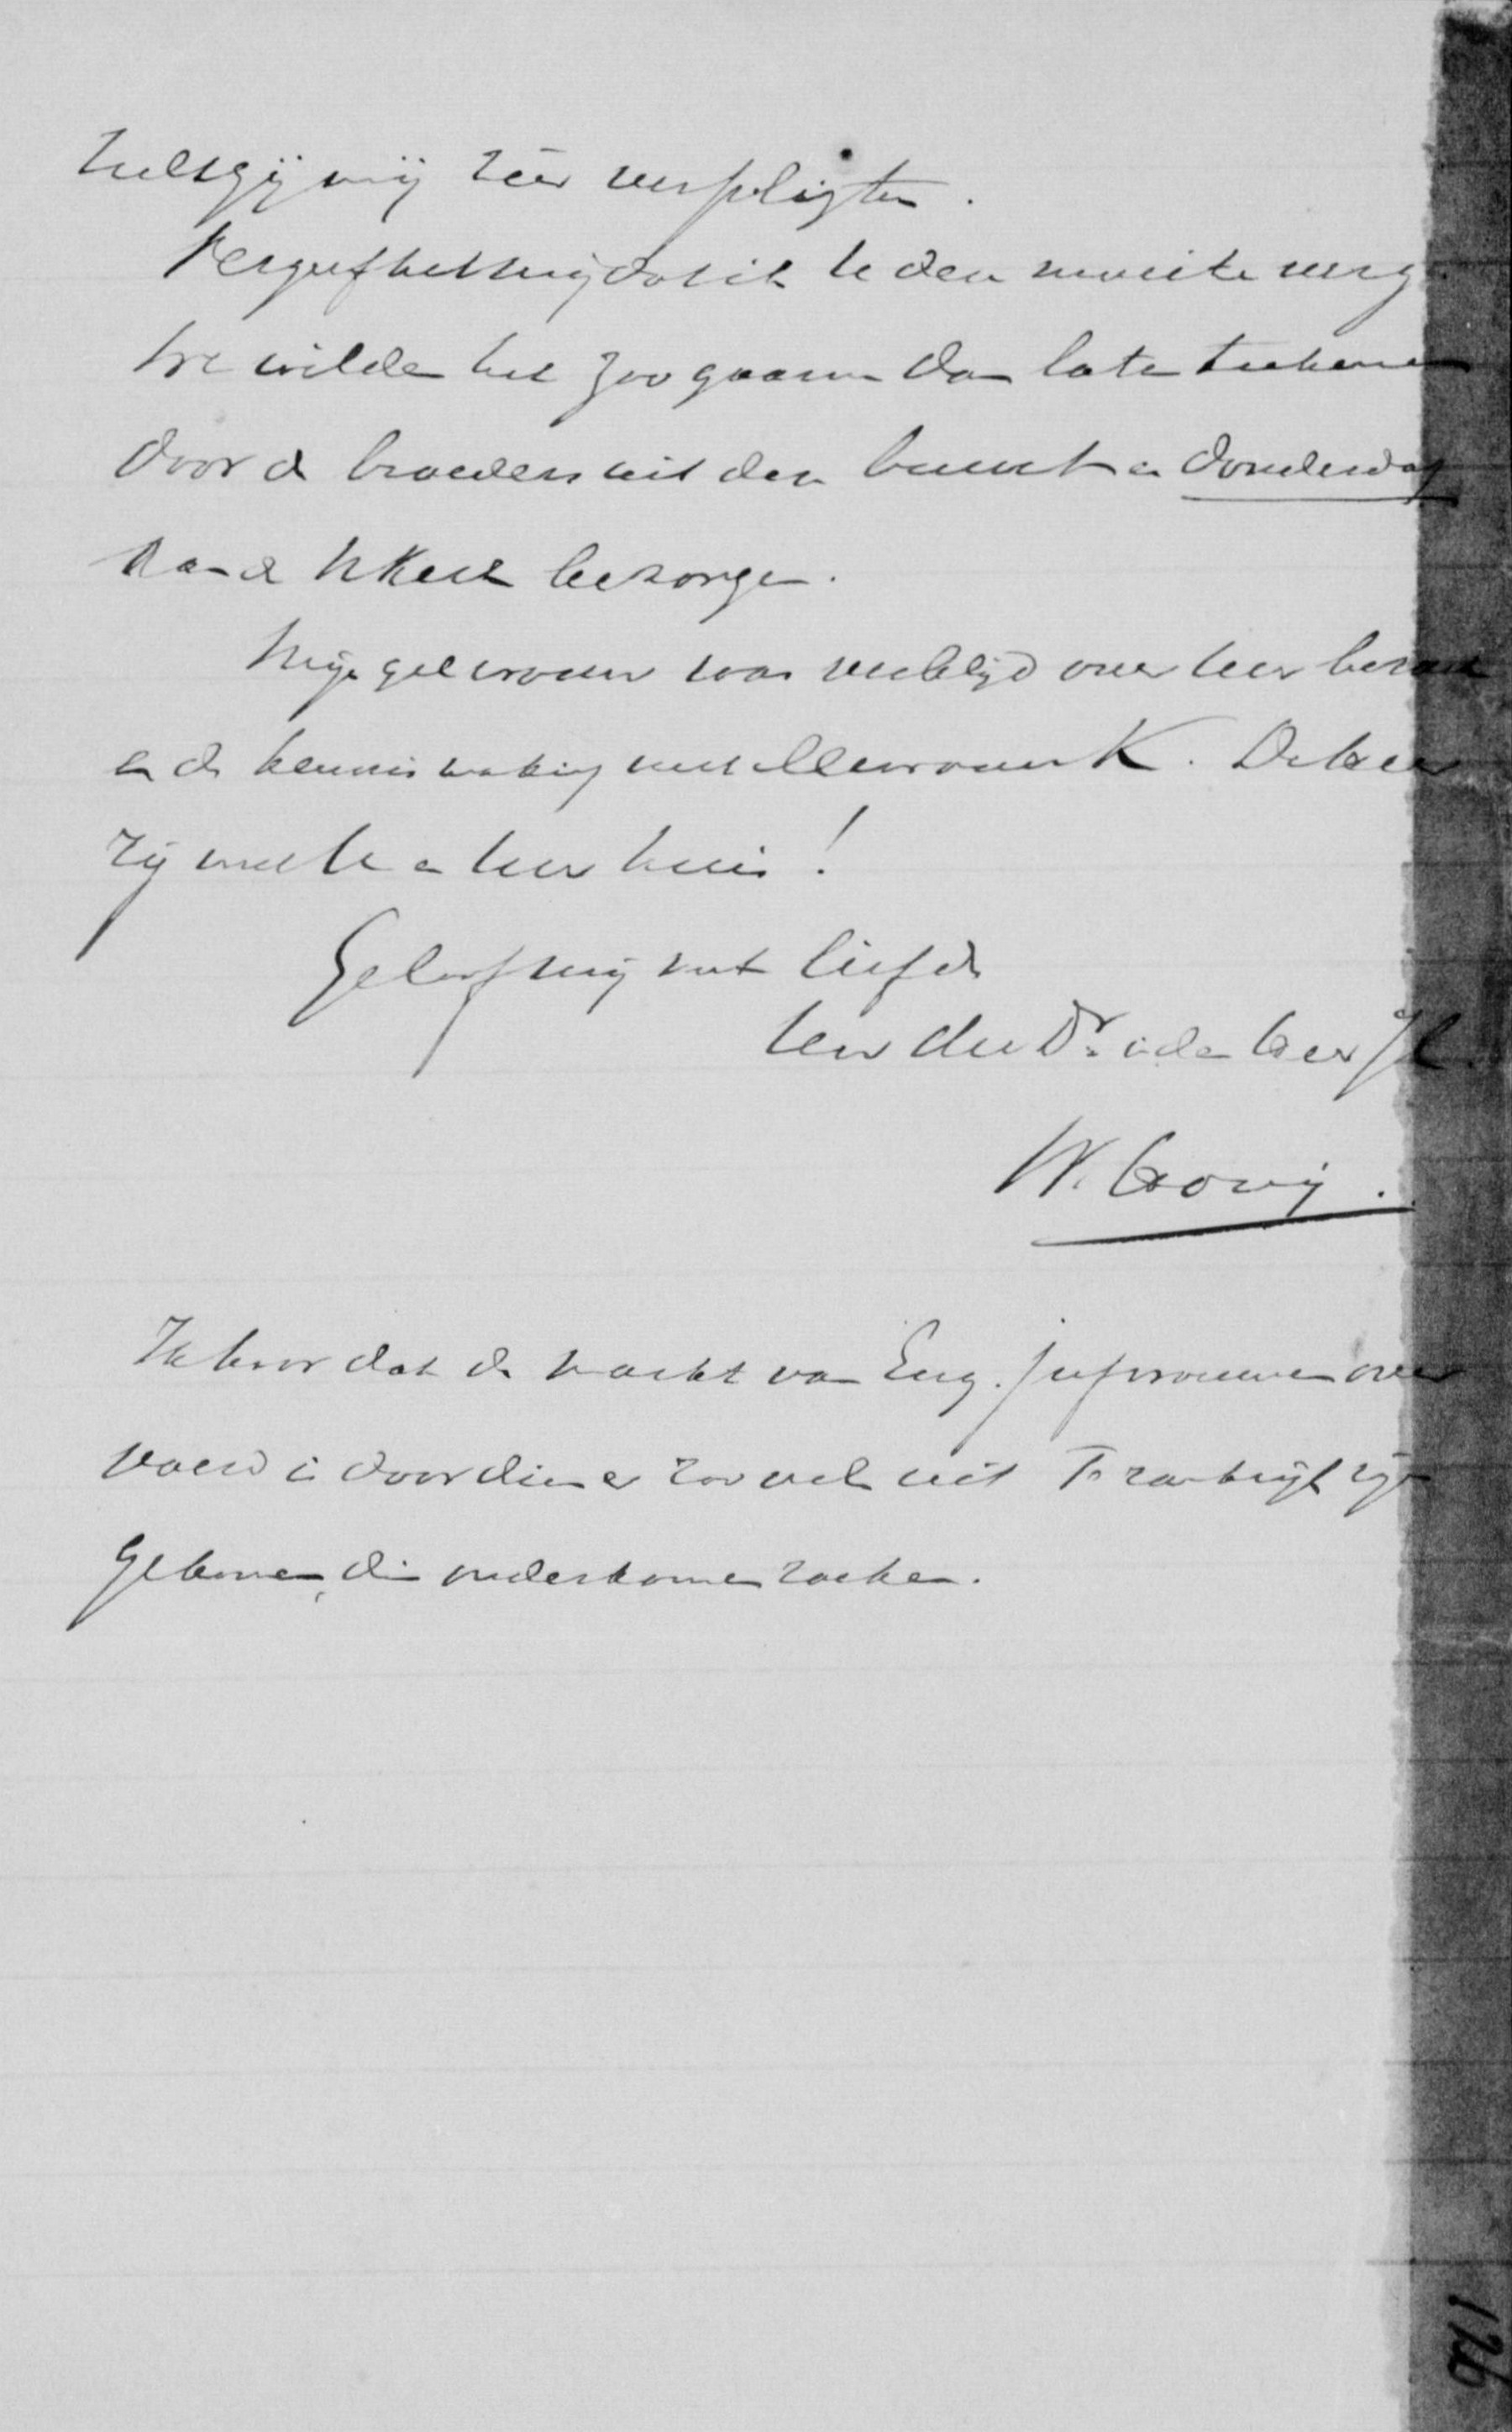 zult gij mij zéér verpligten.
Vergeef het mij dat ik U deze moeite verg.
We wilden het zoo gaarne dan laten teekenen
door de broeders uit den buurt en donderdag
aan de Kerk bezorgen.
Mijn gel vrouw was verblijd over Uw bezoek
en de kennismaking met Mevrouw K. De Heer
zij met U en Uw huis!
Geloof mij met liefde
Uw dw Dr in den Heer
W. Hovy.
Ik hoor dat de markt van Eng. juffrouwen over
voerd is doordien er zooveel uit Frankrijk zijn
gekomen, die onderkomen zoeken.
126